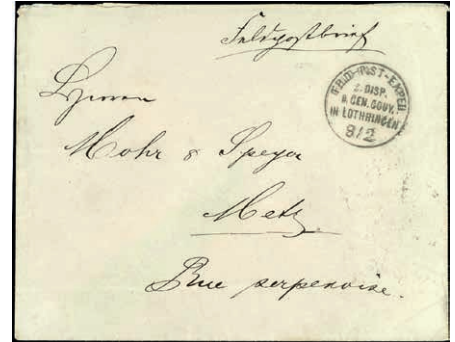 Feldpostbrief
FELD-POST-EXPED
Z. DISP.
D. GEN. GOUV.
IN LOTHRINGEN
8/2
Herren
Mohr & Speyer
Metz
Rue serpenoise.